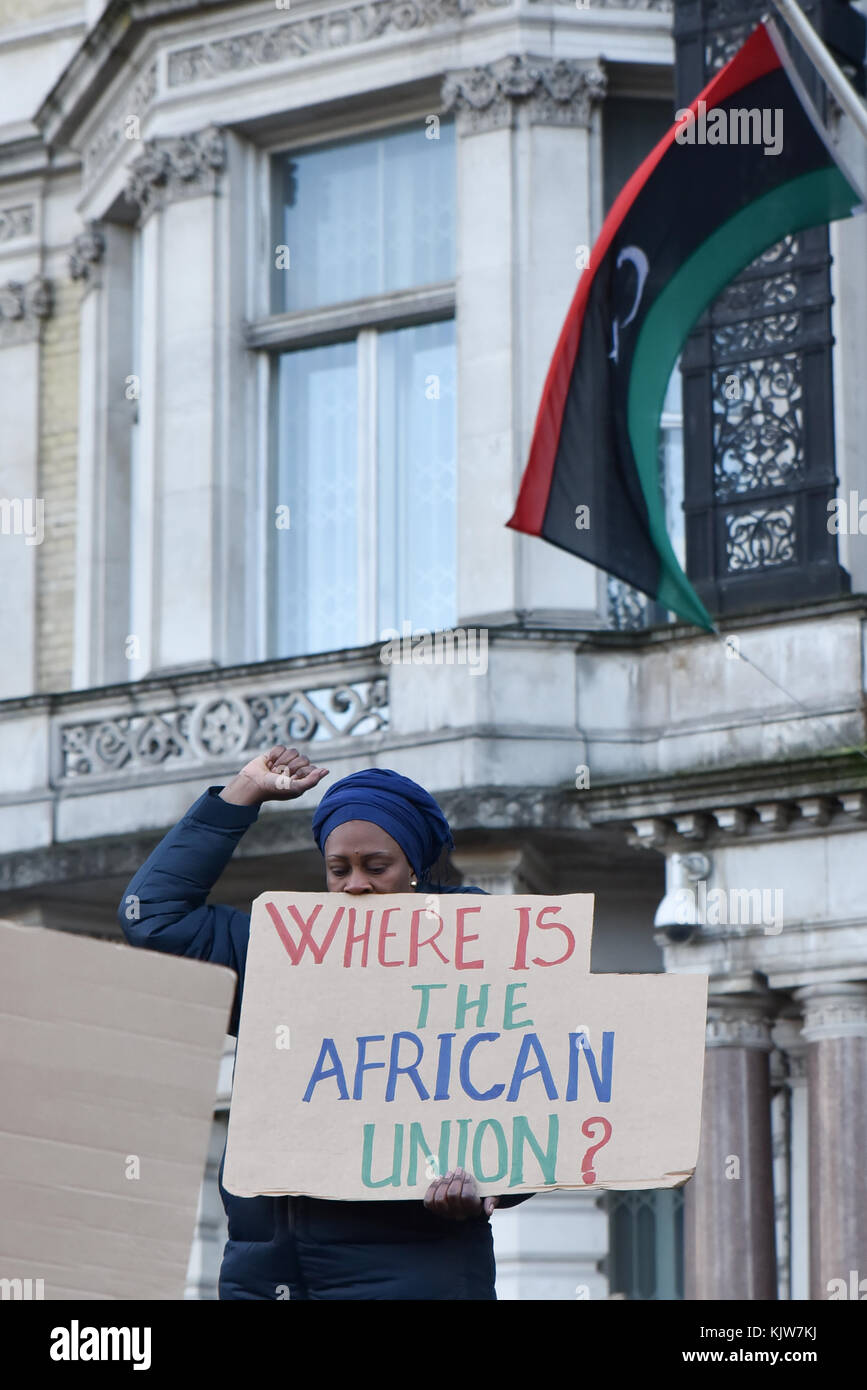 WHERE IS
THE
AFRICAN
UNION?
alamy
Image ID: KJW7KJ
www.alamy.com